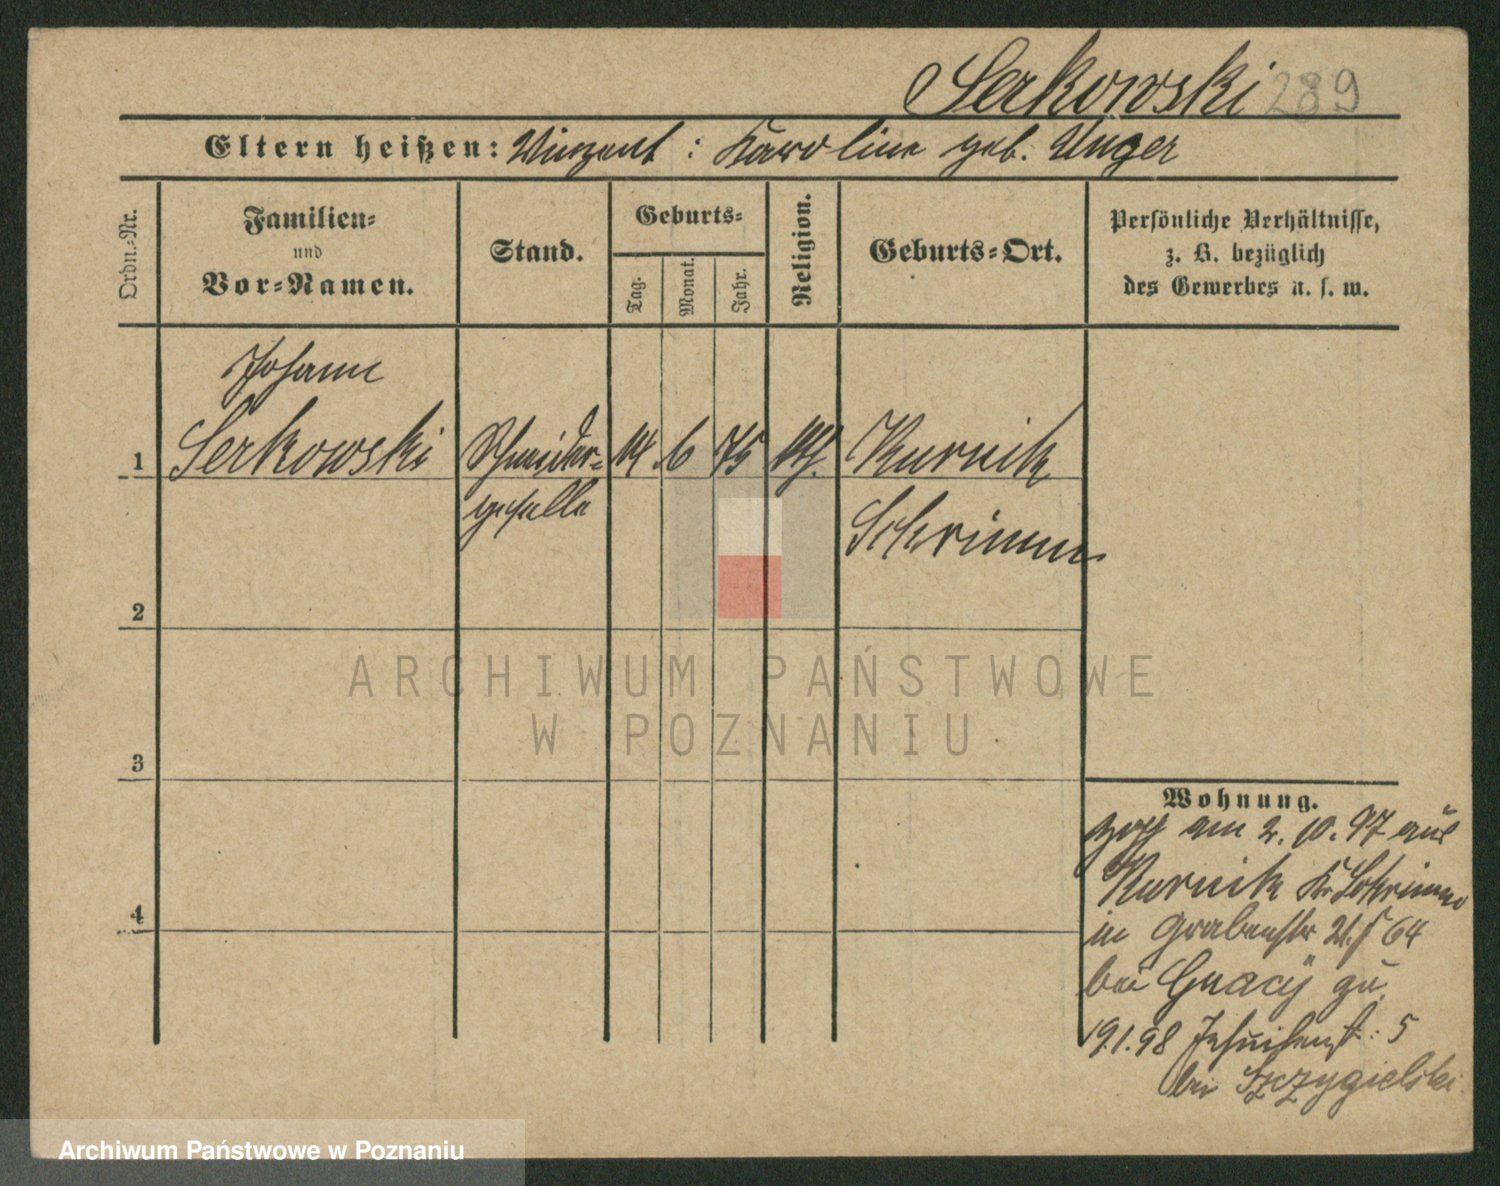 Serkowski 289
Eltern heißen: Winzent : Karoline geb. Unger
Ordn.-Nr.
Familien-
und
Vor-Namen.
Stand.
Geburts-
Tag.
Monat.
Jahr.
Religion.
Geburts-Ort.
Persönliche Verhältnisse,
z. B. bezüglich
des Gewerbes u. s. w.
Johann
1 Serkowski Schneider- 14 6 75 Kurnik
geselle Schrimm
2
3
4
Wohnung.
zog am 2. 10. 97 aus
Kurnik Kr. Schrimm
in Grabenstr 64
bei Gnacij zu
19.1.98 Jesuitenst: 5
bei Szczygielski
ARCHIWUM PAŃSTWOWE
W POZNANIU
Archiwum Państwowe w Poznaniu